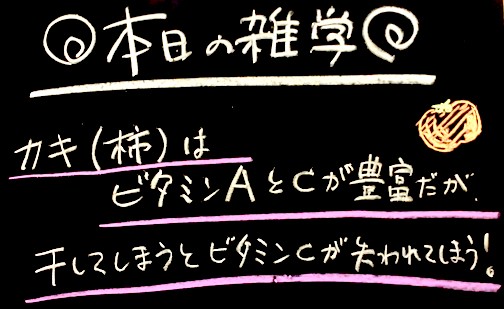 本日の雑学
カキ(柿)は
ビタミンAとCが豊富だが、
干してしまうとビタミンCが失われてしまう!